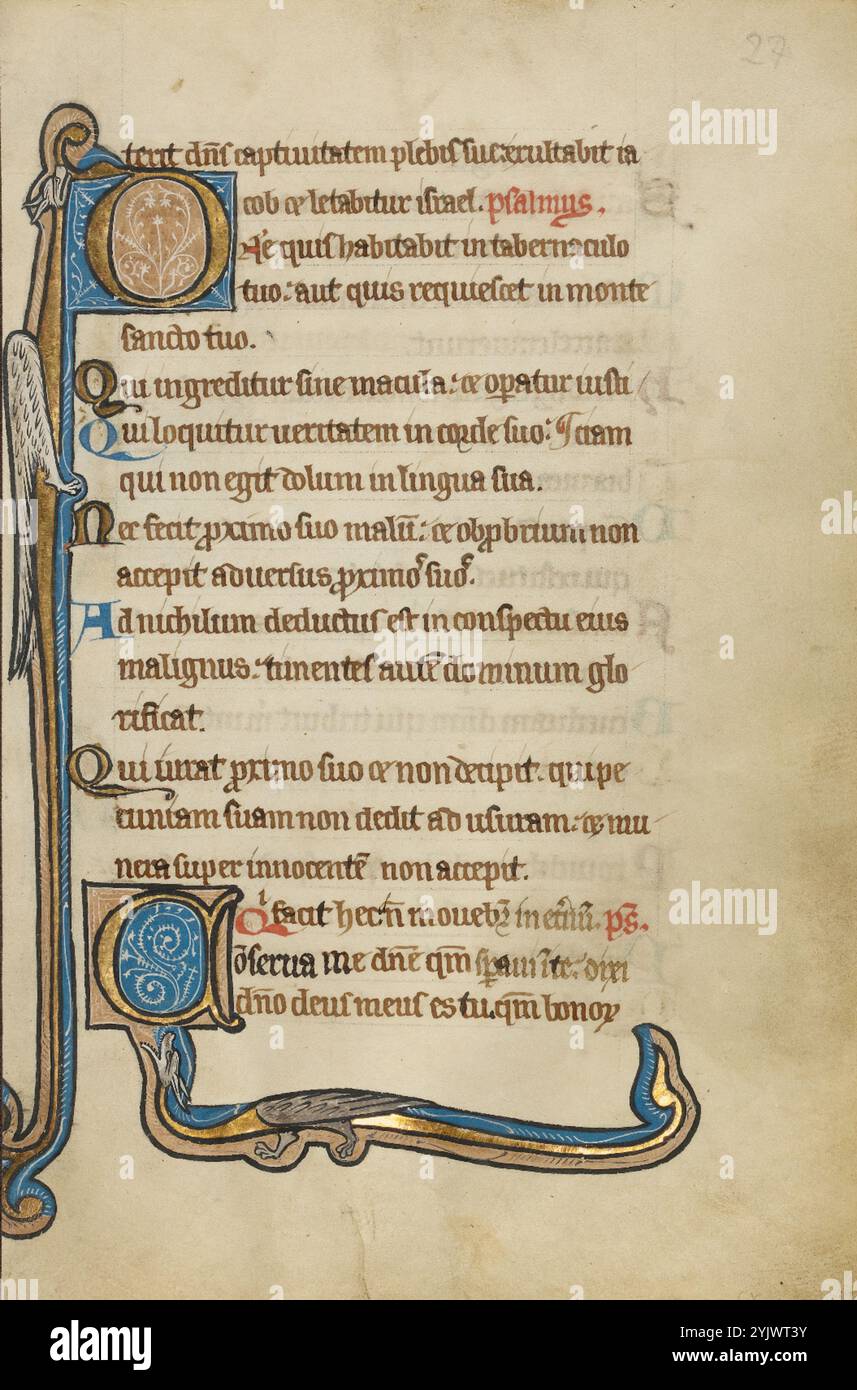 27
terit dn̄s captiuitatem plebis sue exultabit ia
cob ⁊ letabitur israel. psalmus.
D n̄e quis habitabit in tabernaculo
tuo: aut quis requiescet in monte
sancto tuo.
Qui ingreditur sine macula: ⁊ op̄atur iusti
Qui loquitur ueritatem in corde suo: ciam
qui non egit dolum in lingua sua.
Nec fecit ꝓximo suo malū: ⁊ obꝓbrium non
accepit aduersus ꝓximoˢ suoˢ.
Ad nichilum deductus est in conspectu eius
malignus: timentes autē dominum glo
rificat.
Qui iurat ꝓximo suo ⁊ non decipit. qui pe
cuniam suam non dedit ad usuram: ⁊ mu
nera super innocentē non accepit.
Qⁱ facit hec n̄ mouebᷣ in et̄nū. ps̄.
Cōserua me dn̄e qm̄ sp̄aui ī te: dixi
dn̄o deus meus es tu. qm̄ bonoꝝ
alamy
Image ID: 2YJWT3Y
www.alamy.com